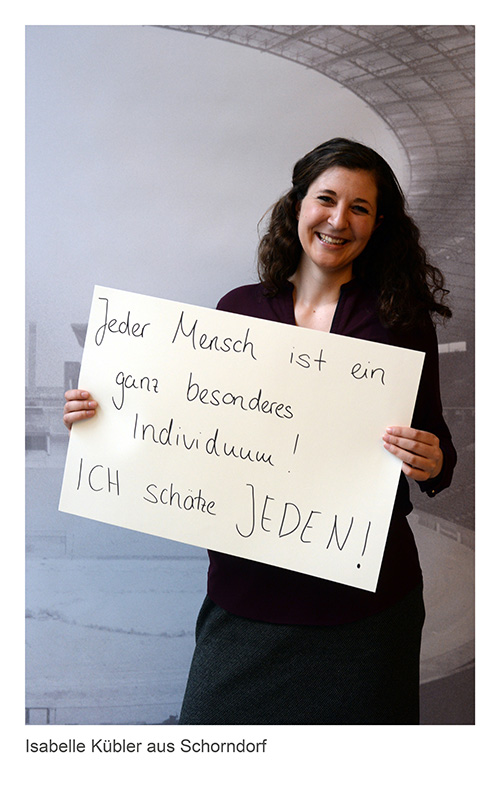 Jeder Mensch ist ein
ganz besonderes
Individuum!
ICH schätze JEDEN!
Isabelle Kübler aus Schorndorf